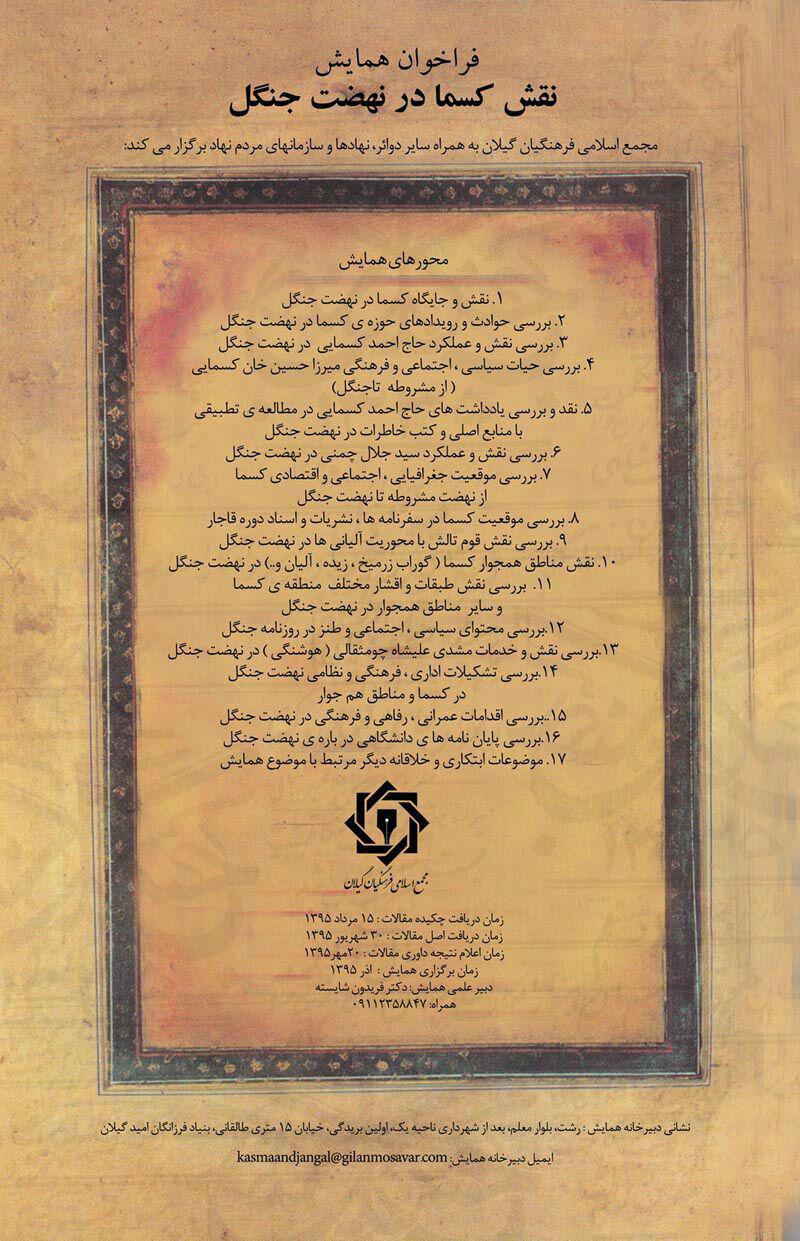 فراخوان همایش
نقش کسما در نهضت جنگل
مجمع اسلامی فرهنگیان گیلان به همراه سایر دوائر، نهادها و سازمانهای مردم نهاد برگزار می کند:
محورهای همایش
۱. نقش و جایگاه کسما در نهضت جنگل
۲. بررسی حوادث و رویدادهای حوزه ی کسما در نهضت جنگل
۳. بررسی نقش و عملکرد حاج احمد کسمایی در نهضت جنگل
۴. بررسی حیات سیاسی ، اجتماعی و فرهنگی میرزا حسین خان کسمایی
( از مشروطه تاجنگل)
۵. نقد و بررسی یادداشت های حاج احمد کسمایی در مطالعه ی تطبیقی
با منابع اصلی و کتب خاطرات در نهضت جنگل
۶. بررسی نقش و عملکرد سید جلال چمنی در نهضت جنگل
۷. بررسی موقعیت جغرافیایی ، اجتماعی و اقتصادی کسما
از نهضت مشروطه تا نهضت جنگل
۸. بررسی موقعیت کسما در سفرنامه ها ، نشریات و اسناد دوره قاجار
۹. بررسی نقش قوم تالش با محوریت آلیانی ها در نهضت جنگل
۱۰. نقش مناطق همجوار کسما ( گوراب زرمیخ ، زیده ، آلیان و..) در نهضت جنگل
۱۱. بررسی نقش طبقات و اقشار مختلف منطقه ی کسما
و سایر مناطق همجوار در نهضت جنگل
۱۲.بررسی محتوای سیاسی ، اجتماعی و طنز در روزنامه جنگل
۱۳.بررسی نقش و خدمات مشدی علیشاه چومثقالی ( هوشنگی ) در نهضت جنگل
۱۴.بررسی تشکیلات اداری ، فرهنگی و نظامی نهضت جنگل
در کسما و مناطق هم جوار
۱۵..بررسی اقدامات عمرانی ، رفاهی و فرهنگی در نهضت جنگل
۱۶.بررسی پایان نامه ها ی دانشگاهی در باره ی نهضت جنگل
۱۷. موضوعات ابتکاری و خلاقانه دیگر مرتبط با موضوع همایش
مجمع اسلامی فرهنگیان گیلان
زمان دریافت چکیده مقالات : ۱۵ مرداد ۱۳۹۵
زمان دریافت اصل مقالات : ۳۰ شهریور ۱۳۹۵
زمان اعلام نتیجه داوری مقالات : ۲۰مهر۱۳۹۵
زمان برگزاری همایش : آذر ۱۳۹۵
دبیر علمی همایش: دکتر فریدون شایسته
همراه: ۰۹۱۱۲۳۵۸۸۴۷
نشانی دبیرخانه همایش : رشت، بلوار معلم، بعد از شهرداری ناحیه یک، اولین بریدگی، خیابان ۱۵ متری طالقانی، بنیاد فرزانگان امید گیلان
ایمیل دبیرخانه همایش: kasmaandjangal@gilanmosavar.com